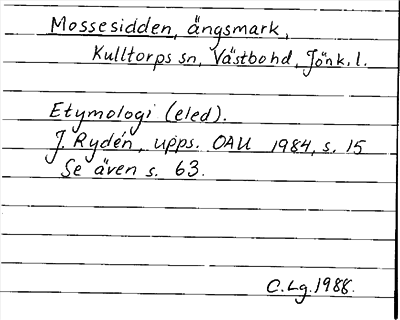 Mossesidden, ängsmark,
Kulltorps sn, Västbohd, Jönk. l.
Etymologi (eled).
J. Rydén, upps. OAU 1984, s. 15
Se även s. 63.
C. Lg. 1988.